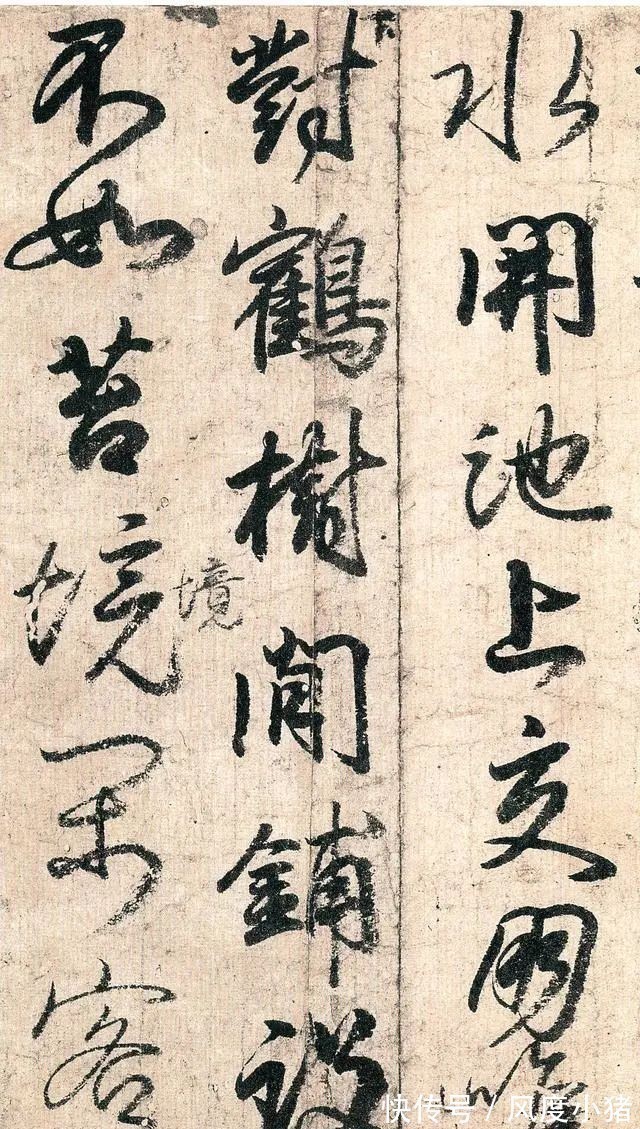 水開池上交朋吟
對鶴樹間鋪設
不如苔境閑客
境
快传号 / 风度小猪